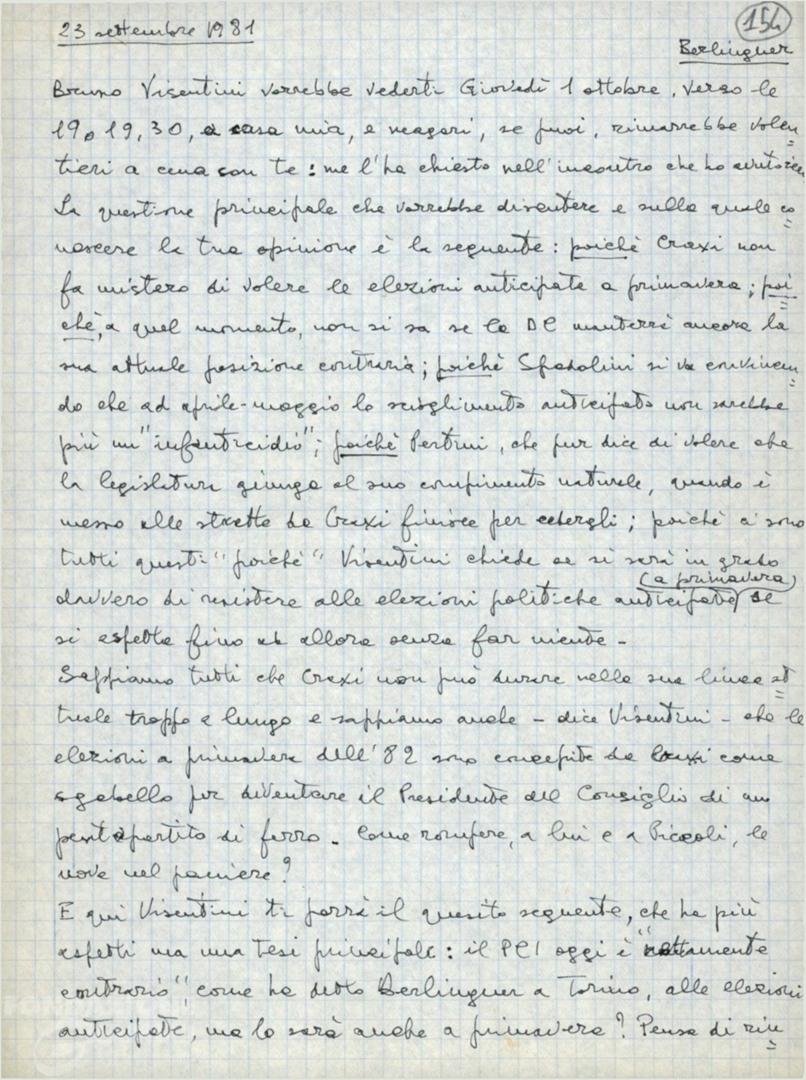 154
23 settembre 1981
Berlinguer
Bruno Visentini vorrebbe vederti Giovedì 1 ottobre, verso le
19 o 19,30, a casa mia, e magari, se puoi, rimarrebbe volen=
tieri a cena con te: me l'ha chiesto nell'incontro che ho avuto ieri.
La questione principale che vorrebbe discutere e sulla quale co=
noscere la tua opinione è la seguente: poichè Craxi non
fa mistero di volere le elezioni anticipate a primavera; poi=
chè, a quel momento, non si sa se la DC manterrà ancora la
sua attuale posizione contraria; poichè Spadolini si va convincen=
do che ad aprile-maggio lo scioglimento anticipato non sarebbe
più un "infanticidio"; poichè Pertini, che pur dice di volere che
la legislatura giunga al suo compimento naturale, quando è
messo alle strette da Craxi finisce per cedergli; poichè ci sono
tutti questi "poichè" Visentini chiede se si sarà in grado
davvero di resistere alle elezioni politiche anticipate (a primavera) se
si aspetta fino ad allora senza far niente -
Sappiamo tutti che Craxi non può durare nella sua linea at=
tuale troppo a lungo e sappiamo anche - dice Visentini - che le
elezioni a primavera dell'82 sono concepite da Craxi come
sgabello per diventare il Presidente del Consiglio di un
pentapartito di ferro. Come rompere, a lui e a Piccoli, le
uova nel paniere?
E qui Visentini ti porrà il quesito seguente, che ha più
aspetti ma una tesi principale: il PCI oggi è "nettamente
contrario", come ha detto Berlinguer a Torino, alle elezioni
anticipate, ma lo sarà anche a primavera? Pensa di rin=